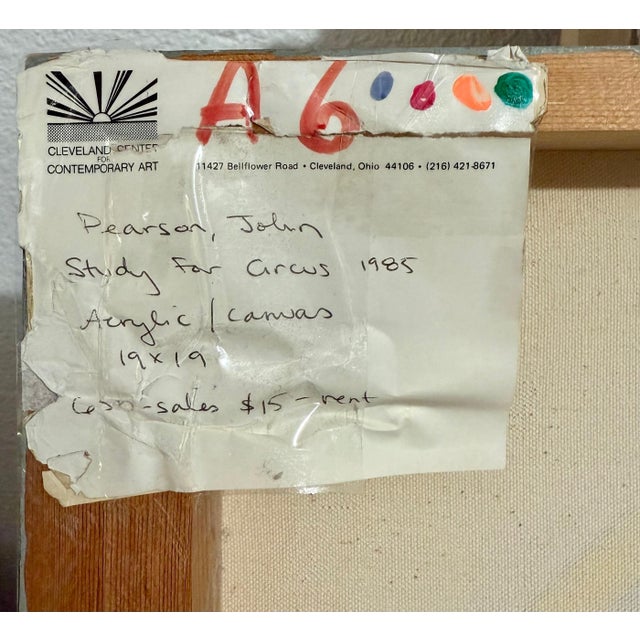 A6
CLEVELAND CENTER
FOR
CONTEMPORARY ART
11427 Bellflower Road • Cleveland, Ohio 44106 • (216) 421-8671
Pearson, John
Study For Circus 1985
Acrylic / Canvas
19 x 19
650 - sales $15 - rent